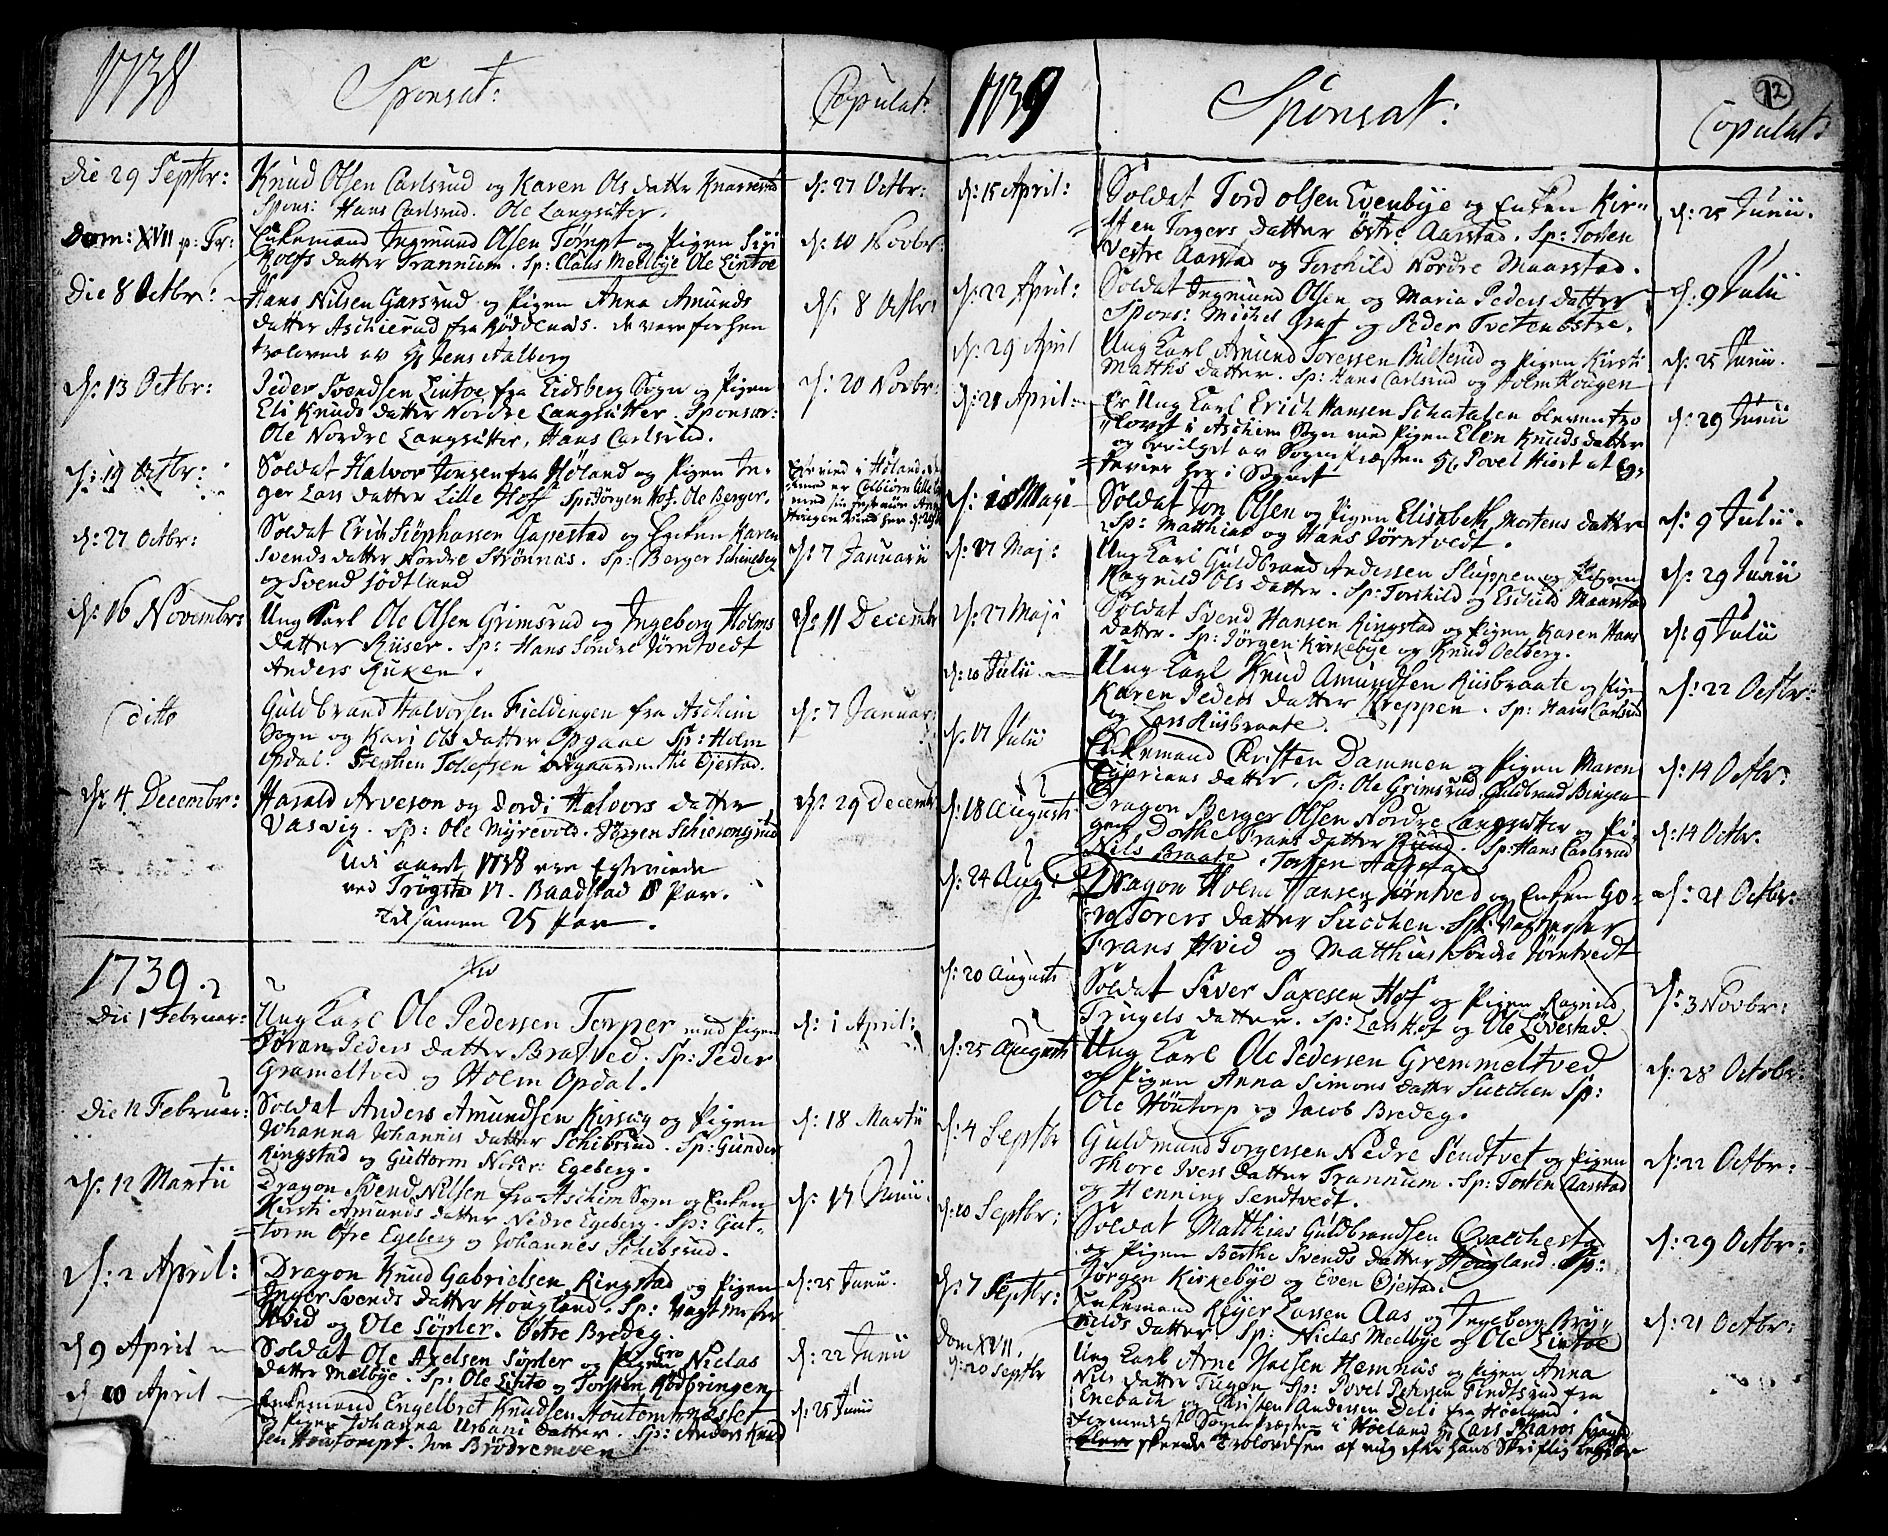 1738
Sponsat:
Copulat:
Die 29 Septbr:
Knud Olsen Carlsrud og Karen Ols datter Knarrerud
Spons: Hans Carlsrud. Ole Langsætter.
d: 27 Octbr:
Dom: XVII p: Tr:
Enkemand Ingmund Olsen Tømpt og Pigen Siri
Rolfs datter Trannum. Sp: Claus Melbye Ole Lintoe
d: 10 Novbr:
Die 8 Octbr:
Hans Nilsen Garsrud og Pigen Anna Amunds
datter Aschierud fra Røddenæs. de vare forhen
trolovede av Hr Jens Aalberg
d: 8 Octbr:
d: 13 Octbr:
Peder Svendsen Lintoe fra Eidsberg Sogn og Pigen
Eli Knuds datter Nordre Langsætter. Sponsor:
Ole Nordre Langsætter, Hans Carlsrud.
d: 20 Novbr:
d: 19 Octbr:
Soldat Halvor Jonsen fra Høland og Pigen In-
ger Lars datter Lille Hof Sp: Jørgen Hof. Ole Berger.
d: 27 Octbr:
Soldat Erich Stephansen Gapestad og Pigen Karen
Svends datter Nordre Strønnæs. Sp: Berger
og Svend Södtland
d: 7 Januarii
d: 16 Novembr:
Ung Karl Ole Olsen Grimsrud og Ingeborg Holms
datter Riiser. Sp: Hans Søndre Jørntvedt
Anders Ruken.
d: 11 Decembr
ditto
Guldbrand Halvorsen Fieldingen fra Aschim
Sogn og Kari Ols datter Opgaae Sp: Holm
Opdal. Stephen Tolefsen Øjestad.
d: 7 Januar:
d: 4 Decembr:
Harald Arveson og Dordi Halvors datter
Vasvig. Sp: Ole Myrevold. Jørgen
d: 29 Decembr
Udi aaret 1738 ere Egteviede
ved Trøgstad 17. Baadstad 8 Par.
tilsamen 25 Par.
1739.
Die 1 Februar:
Ung Karl Ole Pedersen Torper med Pigen
Jøran Peders datter Bratved. Sp: Peder
Grameltved og Holm Opdal.
d: 1 April:
Die 12 Februar:
Soldat Anders Amundsen Kirsæg og Pigen
Johanna Johannis datter Schibsrud. Sp: Gunder
Ringstad og Guttorm Nedr: Egeberg.
d: 18 Martii
d: 12 Martii
Dragon Svend Nilsen fra Aschim Sogn og Enken
Kirsti Amunds datter Nedre Egeberg. Sp: Gut-
torm Øfre Egeberg og Johannes Schibsrud.
d: 17 Junii.
d: 2 April:
Dragon Knud Gabrielsen Ringstad og Pigen
Inger Svends datter Hougland. Sp: Vagtmester
Hvid og Ole Søpler. Østre Bredeg.
d: 25 Junii.
d 9 April
Soldat Ole Axelsen Søpler og Pigen Gro Niclas
datter Melbye. Sp: Ole Linto og Torsten Rødbringen
d: 22 Junii
d 10 April
Enkemand Engelbret Knudsen
og Pigen Johanna Urbani datter. Sp: Anders Knud
sen Houtompt. Iver Brödremoen
d: 25 Junii
1739
Sponsat:
12
Copulat:
d: 15 April:
Soldat Tord Olsen Evenbye og Enken Kir-
sten Torgers datter Østre Aarstad. Sp: Tosten
Vestre Aarstad og Torchild Nordre Maarstad.
d: 25 Junii.
d: 22 April:
Soldat Ingmund Olsen og Maria Peders datter
Spons: Michel Graf og Peder Tveten østre.
d: 9 Julii
d: 29 April
Ung Karl Amund Toressen Bulterud og Pigen Kirsti
Matths datter. Sp: Hans Carlsrud og Holm Hougen
d: 25 Junii.
d: 21 April:
Er Ung Karl Erich Hansen Schatalen bleven tro
lovet i Aschim Sogn med Pigen Elen Knuds datter
og bevilget av Sogne Præsten Hr Povel Hiort at Eg-
tevies her i Sognet
d: 29 Junii
d: 10 Maye
Soldat Jon Olsen og Pigen Elisabeth Mortens datter
Sp: Matthias og Hans Jørntvedt.
d: 9 Julii.
d: 17 Maj:
Ung Karl Guldbrand Andersen Sluppen og Pigen
Ragnild Ols datter. Sp: Torchild og Eschild Maarstad
d: 29 Junii
d: 27 Maji
Soldat Svend Hansen Ringstad og Pigen Karen Hans
datter. Sp: Jørgen Kirkebye og Knud Oelberg.
d: 9 Julii
d: 10 Julii
Ung Karl Knud Amundsen Riisbraate og Pigen
Karen Peders datter Kreppen. Sp: Hans Carlsrud
og Lars Riisbraate.
d: 22 Octbr:
d: 17 Julii
Enkemand Christen Dammen og Pigen Maren
Ciprians datter. Sp: Ole Grimsrud, Guldbrand Bingen
d: 14 Octbr:
d: 18 Augusti
Dragon Berger Olsen Nordre Langsætter og Pi-
gen Dorthe Frans datter Ruud. Sp: Hans Carlsrud
Nils Braate. Torsten Aarstad
d: 14 Octbr.
d: 24 Aug:
Dragon Holm Hansen Jørntved og Enken Go-
ro Torers datter Succhen. Sp: Vagtmester
Frans Hvid og Matthias Søndre Jørntvedt
d: 21 Octbr:
d: 20 Augusti
Soldat Siver Saxesen Hof og Pigen Ragnild
Trugels datter. Sp: Lars Hof og Ole Løvestad.
d: 3 Novbr:
d: 25 Augusti
Ung Karl Ole Pedersen Gremmeltved
og Pigen Anna Simons datter Succhen Sp:
Ole Houtorp og Jacob Bredeg.
d: 28 Octobr:
d: 4 Septbr
Guldmund Torgersen Nedre Sendtvet og Pigen
Thore Ivers datter Trannum. Sp: Tosten Aarstad
og Henning Sendtvedt.
d: 22 Octbr:
d: 10 Septbr:
Soldat Matthias Guldbrandsen
og Pigen Berthe Svends datter Hougland. Sp:
Jørgen Kirkebye og Even Øjestad.
d: 29 Octbr:
d: 7 Septbr:
Enkemand Reyer Larsen Aas og Ingeborg Bry-
nilds datter Sp: Niclas Melbye og Ole Lintoe
d: 21 Octbr:
Dom XVII.
d: 20 Septbr
Ung Karl Arne Ivesen Hemnæs og Pigen Anna
Nils datter Tugen Sp: Povel Pedersen Tindtsrud fra
Enebach og Christen Andersen Deli fra Høeland.
Sogne Præsten i Høeland Hr Lars
blev skeede Trolovelsen af mig efter hans Skriftlig begiær